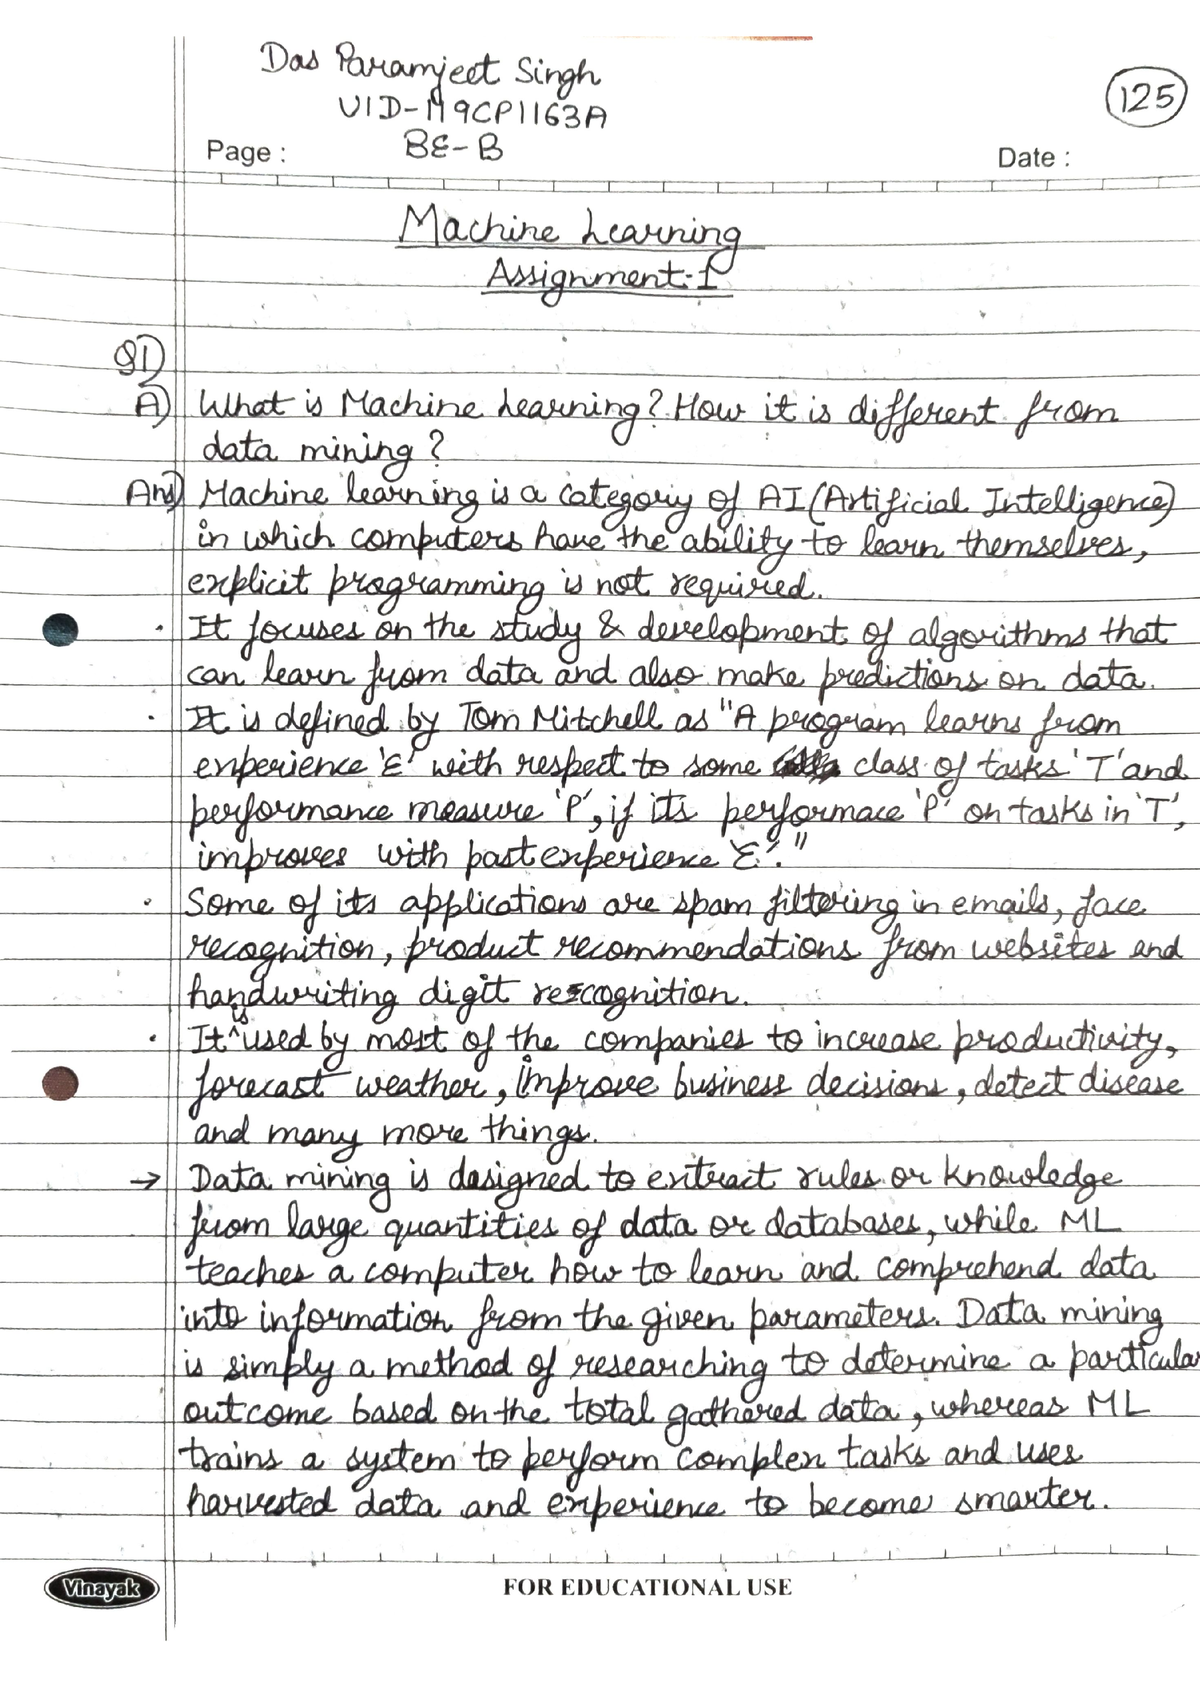 Das Paramjeet Singh
UID-119CP1163A
125
BE-B
Page :
Date :
Machine Learning
Assignment:1
Q1)
A) What is Machine Learning? How it is different from
data mining ?
Ans) Machine learning is a category of AI (Artificial Intelligence)
in which computers have the ability to learn themselves,
explicit programming is not required.
· It focuses on the study & development of algorithms that
can learn from data and also make predictions on data.
· It is defined by Tom Mitchell as "A program learns from
experience 'E' with respect to some class of tasks 'T' and
performance measure 'P', if its performace 'P' on tasks in 'T',
improves with past experience 'E'."
· Some of its applications are spam filtering in emails, face
recognition, product recommendations from websites and
handwriting digit recognition.
· It is used by most of the companies to increase productivity,
forecast weather, improve business decisions, detect disease
and many more things.
→ Data mining is designed to extract rules or knowledge
from large quantities of data or databases, while ML
teaches a computer how to learn and comprehend data
into information from the given parameters. Data mining
is simply a method of researching to determine a particular
outcome based on the total gathered data, whereas ML
trains a system to perform complex tasks and uses
harvested data and experience to become smarter.
Vinayak
FOR EDUCATIONAL USE